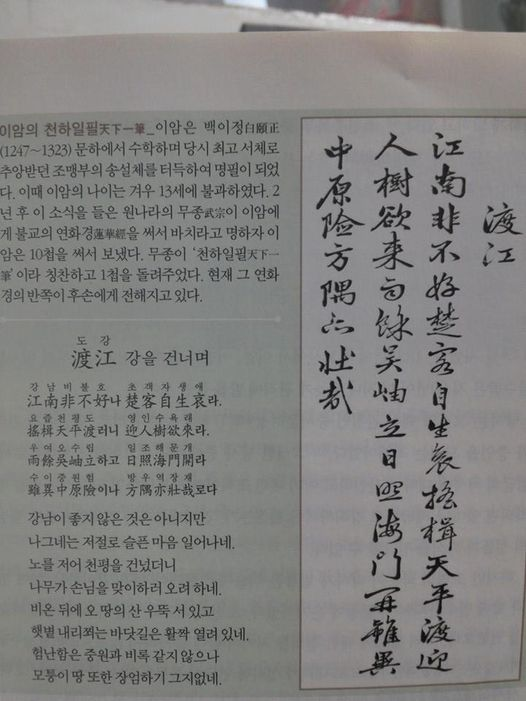 이암의 천하일필天下一筆_이암은 백이정白頤正
(1247~1323) 문하에서 수학하며 당시 최고 서체로
추앙받던 조맹부의 송설체를 터득하여 명필이 되었
다. 이때 이암의 나이는 겨우 13세에 불과하였다. 2
년 후 이 소식을 들은 원나라의 무종武宗이 이암에
게 불교의 연화경蓮華經을 써서 바치라고 명하자 이
암은 10첩을 써서 보냈다. 무종이 ‘천하일필天下一
筆’이라 칭찬하고 1첩을 돌려주었다. 현재 그 연화
경의 반쪽이 후손에게 전해지고 있다.
도 강
渡江 강을 건너며
강 남 비 불 호 초 객 자 생 애
江南非不好나 楚客自生哀라.
요 즙 천 평 도 영 인 수 욕 래
搖楫天平渡러니 迎人樹欲來라.
우 여 오 수 립 일 조 해 문 개
雨餘吳岫立하고 日照海門開라
수 이 중 원 험 방 우 역 장 재
雖異中原險이나 方隅亦壯哉로다
강남이 좋지 않은 것은 아니지만
나그네는 저절로 슬픈 마음 일어나네.
노를 저어 천평을 건넜더니
나무가 손님을 맞이하러 오려 하네.
비온 뒤에 오 땅의 산 우뚝 서 있고
햇볕 내리쬐는 바닷길은 활짝 열려 있네.
험난함은 중원과 비록 같지 않으나
모퉁이 땅 또한 장엄하기 그지없네.
渡江
江南非不好楚客自生哀搖楫天平渡迎
人樹欲来雨餘吴岫立日照海门开雖異
中原險方隅亦壯哉